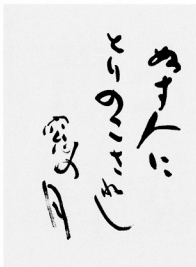 ぬす人に
とりのこされし
窓の月